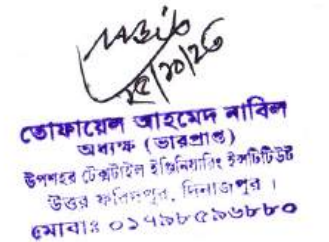 তোফায়েল আহমেদ নাবিল
অধ্যক্ষ (ভারপ্রাপ্ত)
উপশহর টেক্সটাইল ইঞ্জিনিয়ারিং ইন্সটিটিউট
উত্তর ফরিদপুর, দিনাজপুর ।
মোবাঃ ০১৭৯৮৫৯৬৮৮০